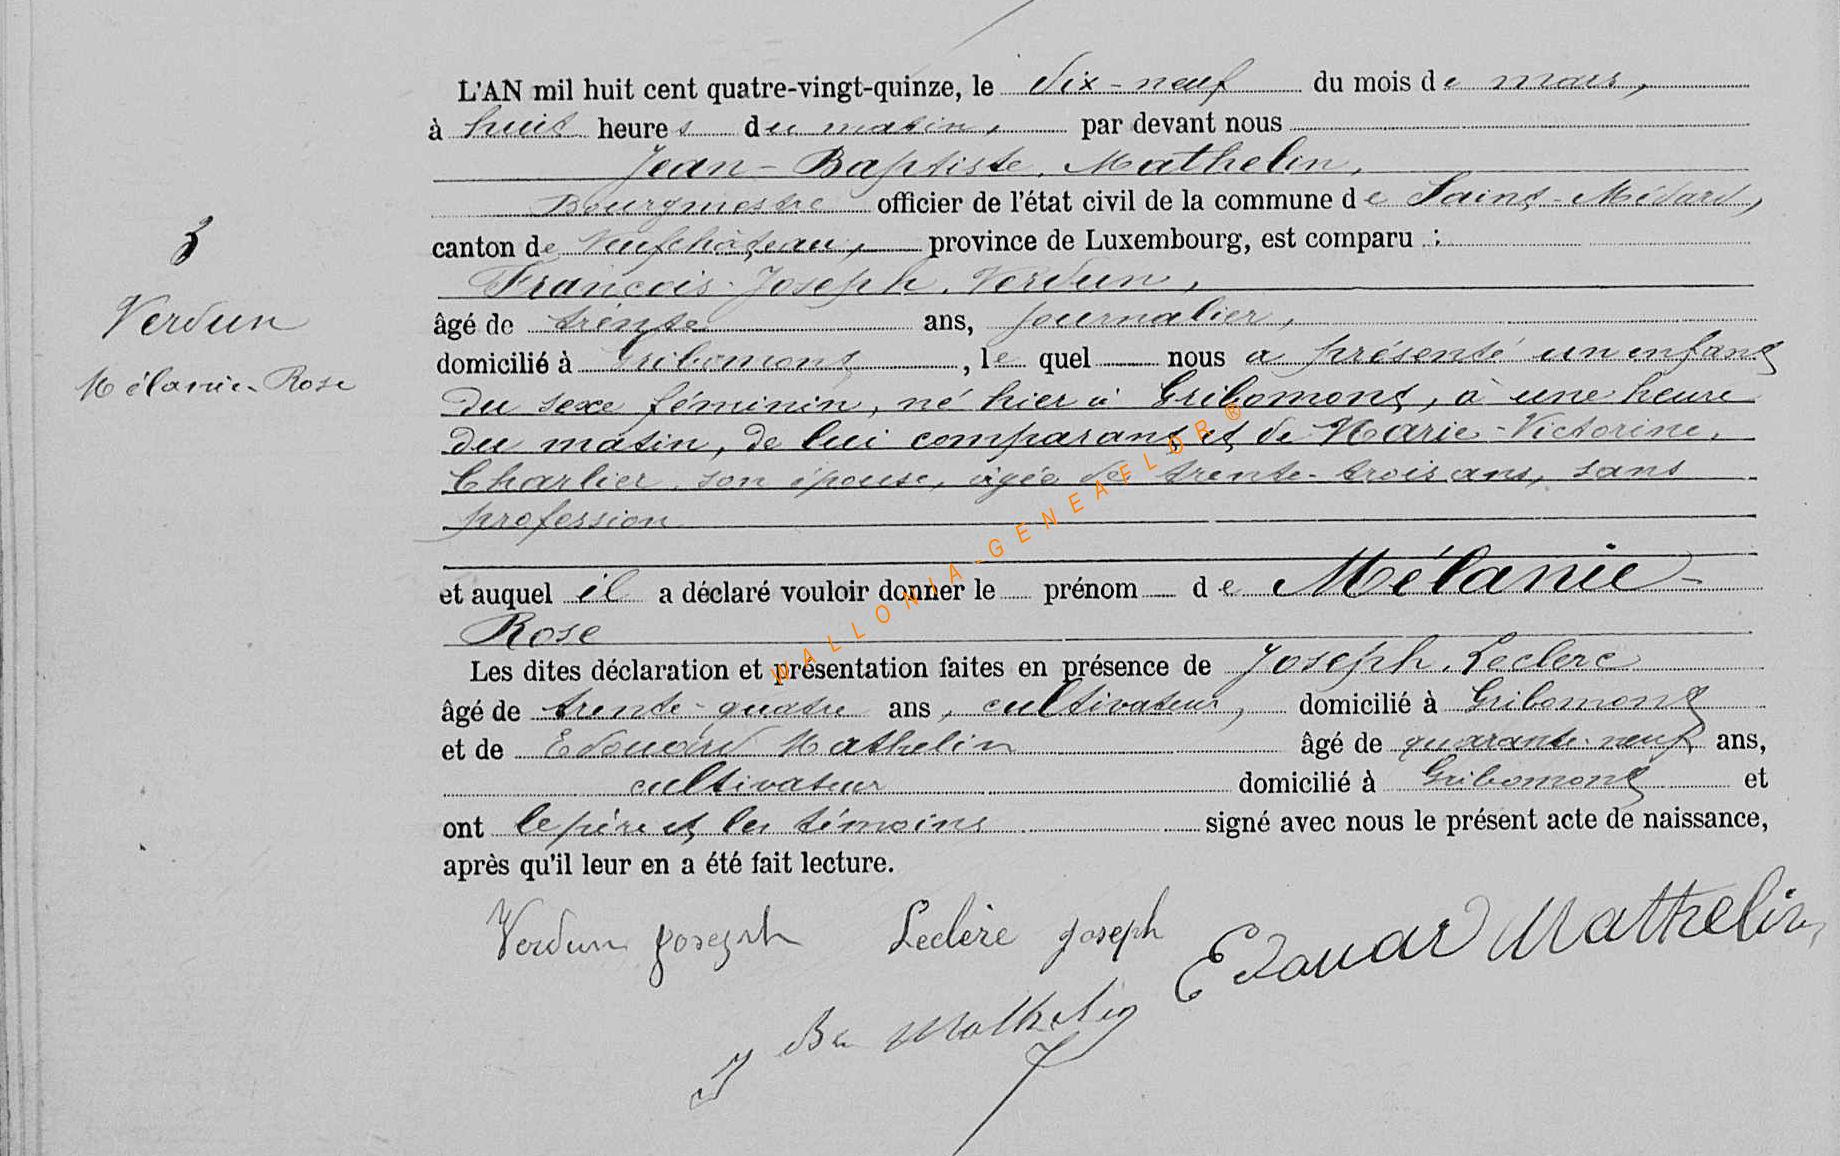 L'AN mil huit cent quatre-vingt-quinze, le dix-neuf du mois de mars,
à huit heures du matin, par devant nous
Jean-Baptiste Mathelin,
Bourgmestre officier de l'état civil de la commune de Saint-Médard,
canton de Neufchâteau, province de Luxembourg, est comparu :
François-Joseph Verdun,
âgé de trente ans, journalier,
domicilié à Gribomont, lequel nous a présenté un enfant
du sexe féminin, né hier à Gribomont, à une heure
du matin, de lui comparant et de Marie-Victorine,
Charlier son épouse, âgée de trente-trois ans, sans
profession
et auquel il a déclaré vouloir donner le prénom de Mélanie-
Rose
Les dites déclaration et présentation faites en présence de Joseph Leclere
âgé de trente-quatre ans, cultivateur, domicilié à Gribomont
et de Edouard Mathelin âgé de quarante-neuf ans,
cultivateur domicilié à Gribomont et
ont le père et les témoins signé avec nous le présent acte de naissance,
après qu'il leur en a été fait lecture.
Verdun joseph Leclère joseph Edouard Mathelin
J Bte Mathelin
3
Verdun
Mélanie-Rose
WALLONIA-GENEAFLOR®